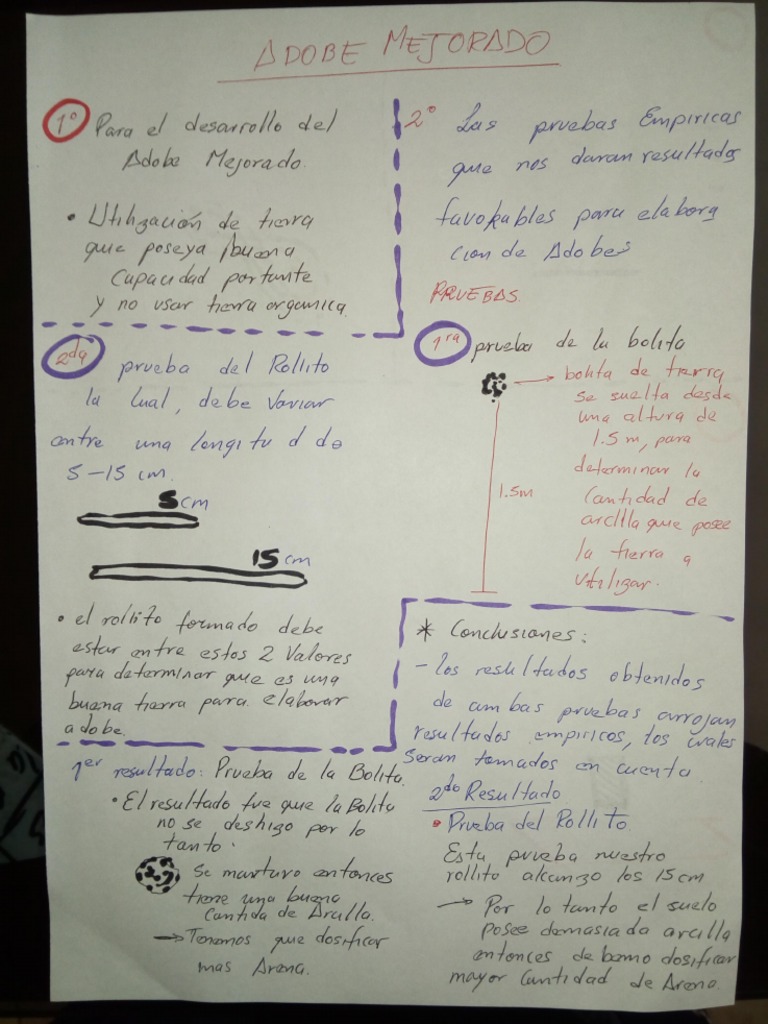 ADOBE MEJORADO
1º Para el desarrollo del
Adobe Mejorado.
• Utilización de tierra
que poseya buena
Capacidad portante
y no usar tierra organica.
2º Las pruebas Empiricas
que nos daran resultados
favorables para elabora
cion de Adobes
PRUEBAS.
1ra prueba de la bolita
→ bolita de tierra
se suelta desde
una altura de
1.5 m, para
determinar la
Cantidad de
arcilla que posee
la tierra a
utilizar.
1.5m
2da prueba del Rollito
la cual, debe Variar
entre una longitud de
5-15 cm.
5 cm
15 cm
• el rollito formado debe
estar entre estos 2 Valores
para determinar que es una
buena tierra para elaborar
adobe.
* Conclusiones:
- los resultados obtenidos
de ambas pruebas arrojan
resultados empiricos, los cuales
Seran tomados en cuenta
1er resultado: Prueba de la Bolita.
• El resultado fue que la Bolita
no se deshizo por lo
tanto.
Se mantuvo entonces
tiene una buena
Cantida de Arcilla.
→ Tenemos que dosificar
mas Arena.
2do Resultado
• Prueba del Rollito.
Esta prueba nuestro
rollito alcanzo los 15cm
→ Por lo tanto el suelo
posee demasiada arcilla
entonces debemo dosificar
mayor Cantidad de Arena.